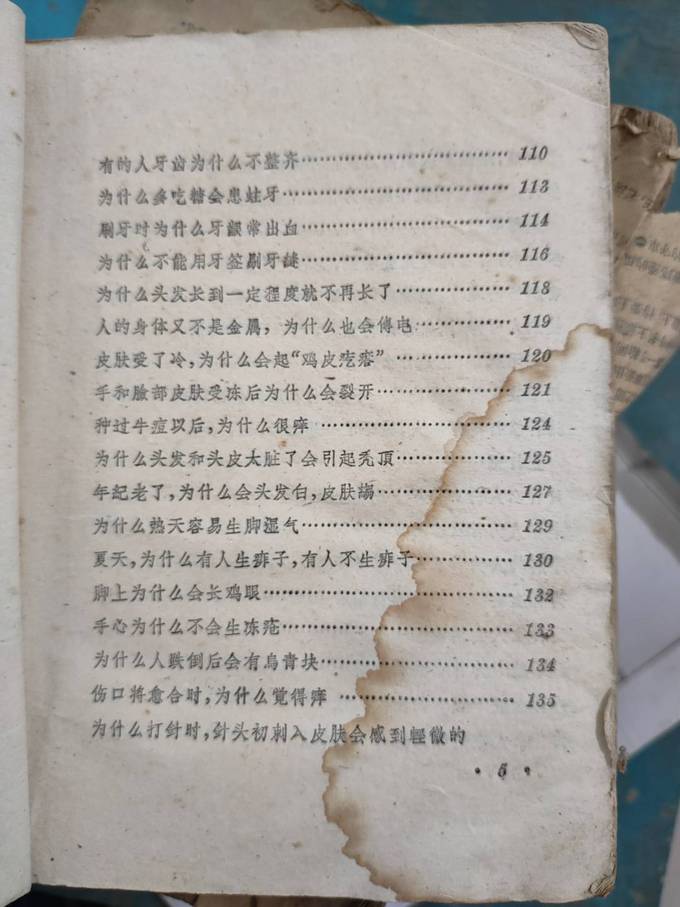 有的人牙齿为什么不整齐……………………………… 110
为什么多吃糖会患蛀牙……………………………… 113
刷牙时为什么牙龈常出血……………………………… 114
为什么不能用牙签剔牙缝……………………………… 116
为什么头发长到一定程度就不再长了……………… 118
人的身体又不是金属，为什么也会传电…………… 119
皮肤受了冷，为什么会起“鸡皮疙瘩” …………… 120
手和臉部皮肤受冻后为什么会裂开………………… 121
种过牛痘以后，为什么很痒 ………………………… 124
为什么头发和头皮太脏了会引起秃頂……………… 125
年纪老了，为什么会头发白，皮肤皺……………… 127
为什么热天容易生脚湿气…………………………… 129
夏天，为什么有人生痱子，有人不生痱子………… 130
脚上为什么会长鸡眼………………………………… 132
手心为什么不会生冻疮……………………………… 133
为什么人跌倒后会有烏青块………………………… 134
伤口将愈合时，为什么覚得痒 ……………………… 135
为什么打針时，針头初刺入皮肤会感到輕微的
• 5 •